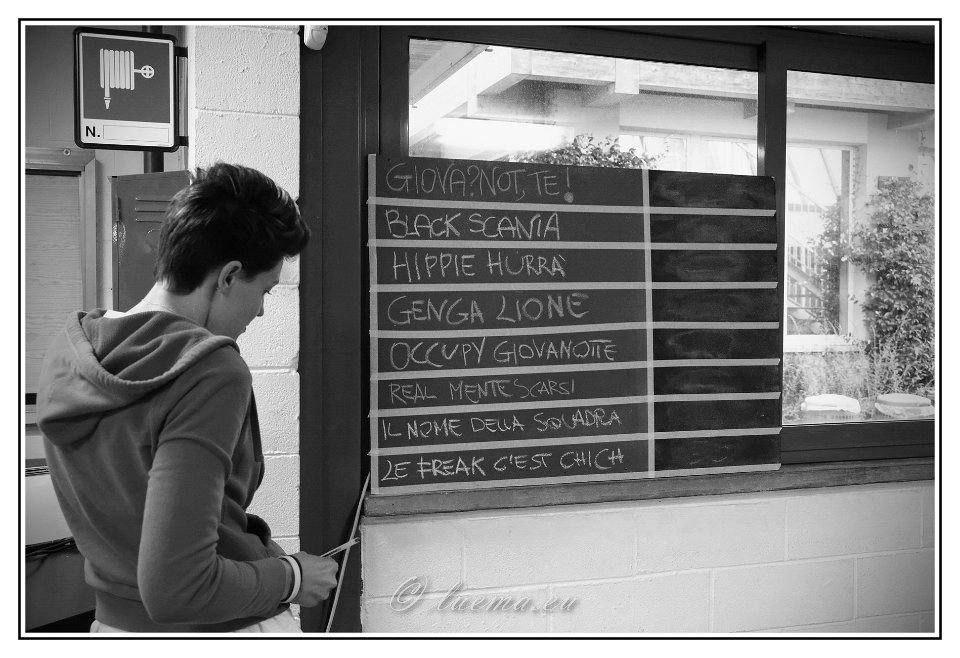 N.
GIOVA?NOT,TE!
BLACK SCANIA
HIPPIE HURRÀ
GENGA LIONE
OCCUPY GIOVANOTTE
REAL MENTE SCARSI
IL NOME DELLA SQUADRA
LE FREAK C'EST CHICH
© luema.eu